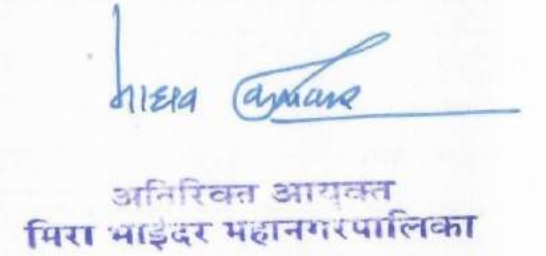 माधव
अतिरिक्त आयुक्त
मिरा भाईंदर महानगरपालिका